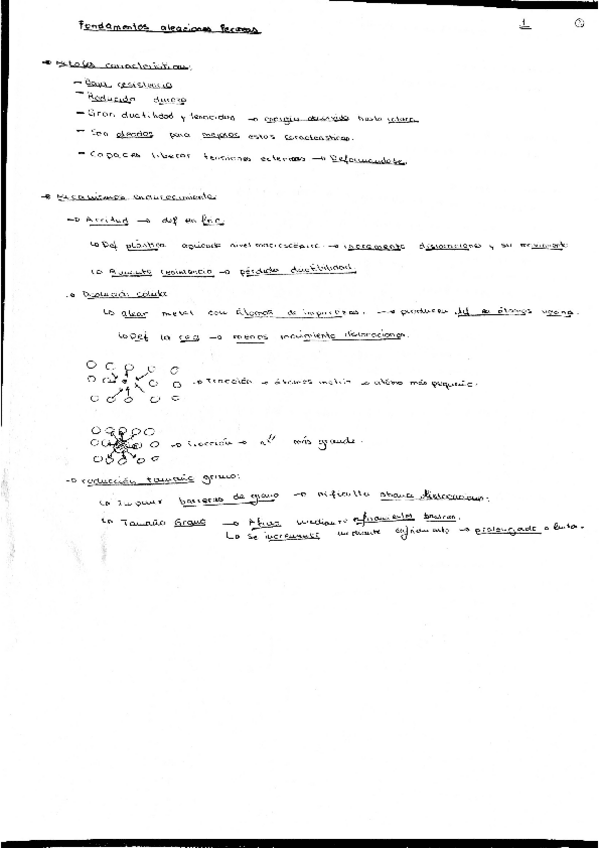 Fundamentos aleaciones ferreas 1 1
Metales características:
- Baja resistencia
- Reducida dureza
- Gran ductilidad y tenacidad → energía absorbida hasta rotura
- Son aleados para mejorar estas características.
- Capaces liberar tensiones externas → Deformandose.
Mecanismos endurecimiento
→ Acritud → def en frio
↳ Def plástica aplicada nivel macroscópico → incremento dislocaciones y su movimiento
↳ Aumento resistencia → pérdida ductibilidad.
Disolución sólida
↳ alear metal con átomos de impurezas. → producen def átomos
↳ Def la red → menos movimiento dislocaciones.
→ Tracción → átomos matriz → átomo más pequeño.
→ → más grande.
→ reducción tamaño grano:
↳ Imponer barreras de grano → Dificulta dislocaciones.
↳ Tamaño Grano → Afino mediante enfriamientos
↳ Se incrementa mediante enfriamiento → prolongado o lento.